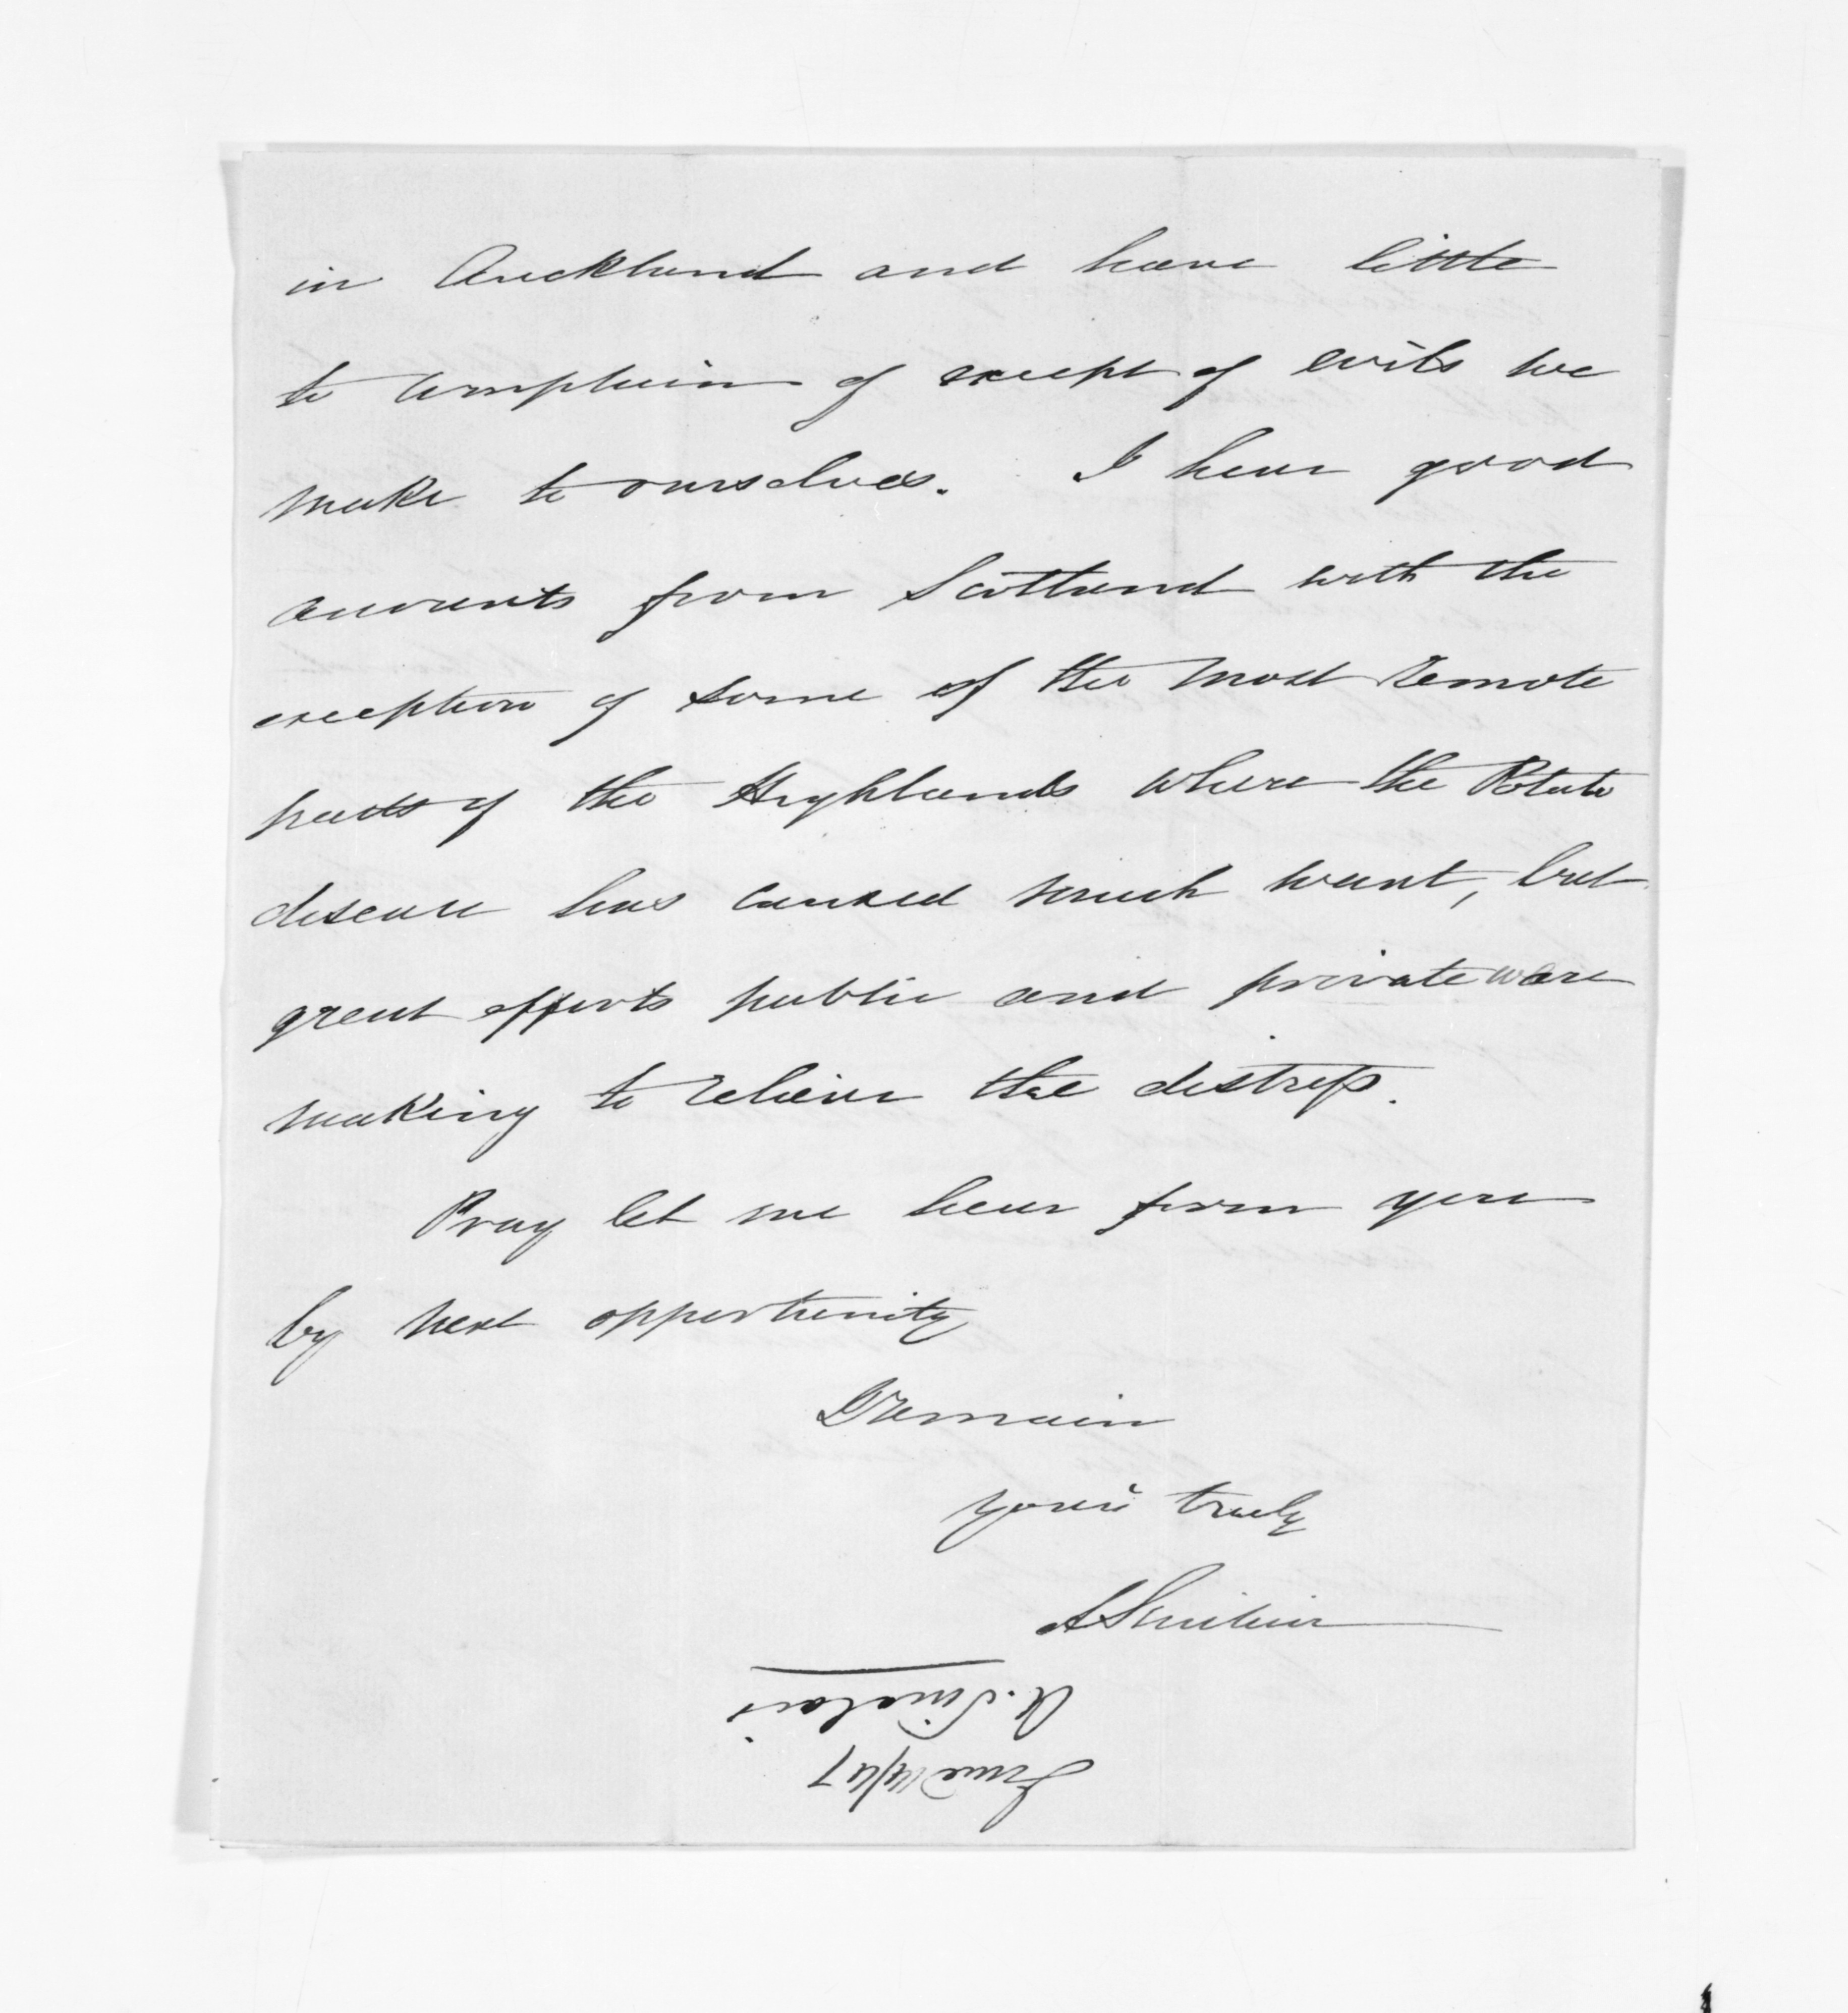 in Auckland and have little
to complain of except of evils we
make to ourselves. I hear good
accounts from Scotland with the
exception of some of the most remote
parts of the Highlands where the Potato
disease has caused much want, but
great efforts public and private were
making to relieve the distress.
Pray let me hear from you
by next opportunity
I remain
yours truly
A Sinclair
A. Sinclair
June 14/47